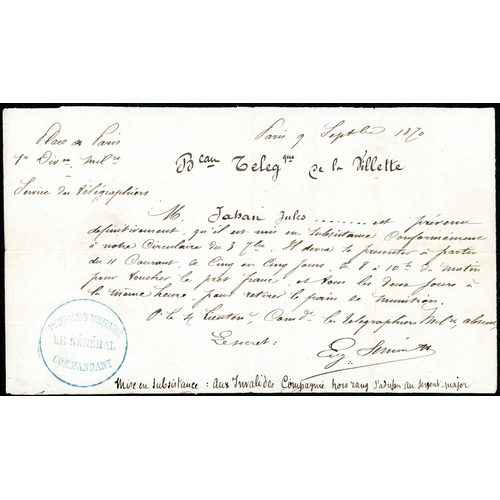 Place de Paris
1re Divon Milre
Service des Télégraphiers
Paris 9 Septbre 1870
Beau Telegque de la Villette
M. Jahan Jules ........ est prévenu
definitivement, qu'il est mis en subsistance conformément
à notre Circulaire du 3 7bre. Il devra se presenter à partir
du 11 Courant, de Cinq en Cinq jours, de 8 à 10h du matin
pour toucher le prêt franc, et tous les deux jours à
la même heure, pour retirer le pain de munition.
P. le Lieuten. Comdt les télégraphiers Mlres absent,
Le secret:
DIVISION MILITAIRE
LE GÉNÉRAL
COMMANDANT
Mise en subsistance : aux Invalides Compagnie hors rang s'adresser au sergent major